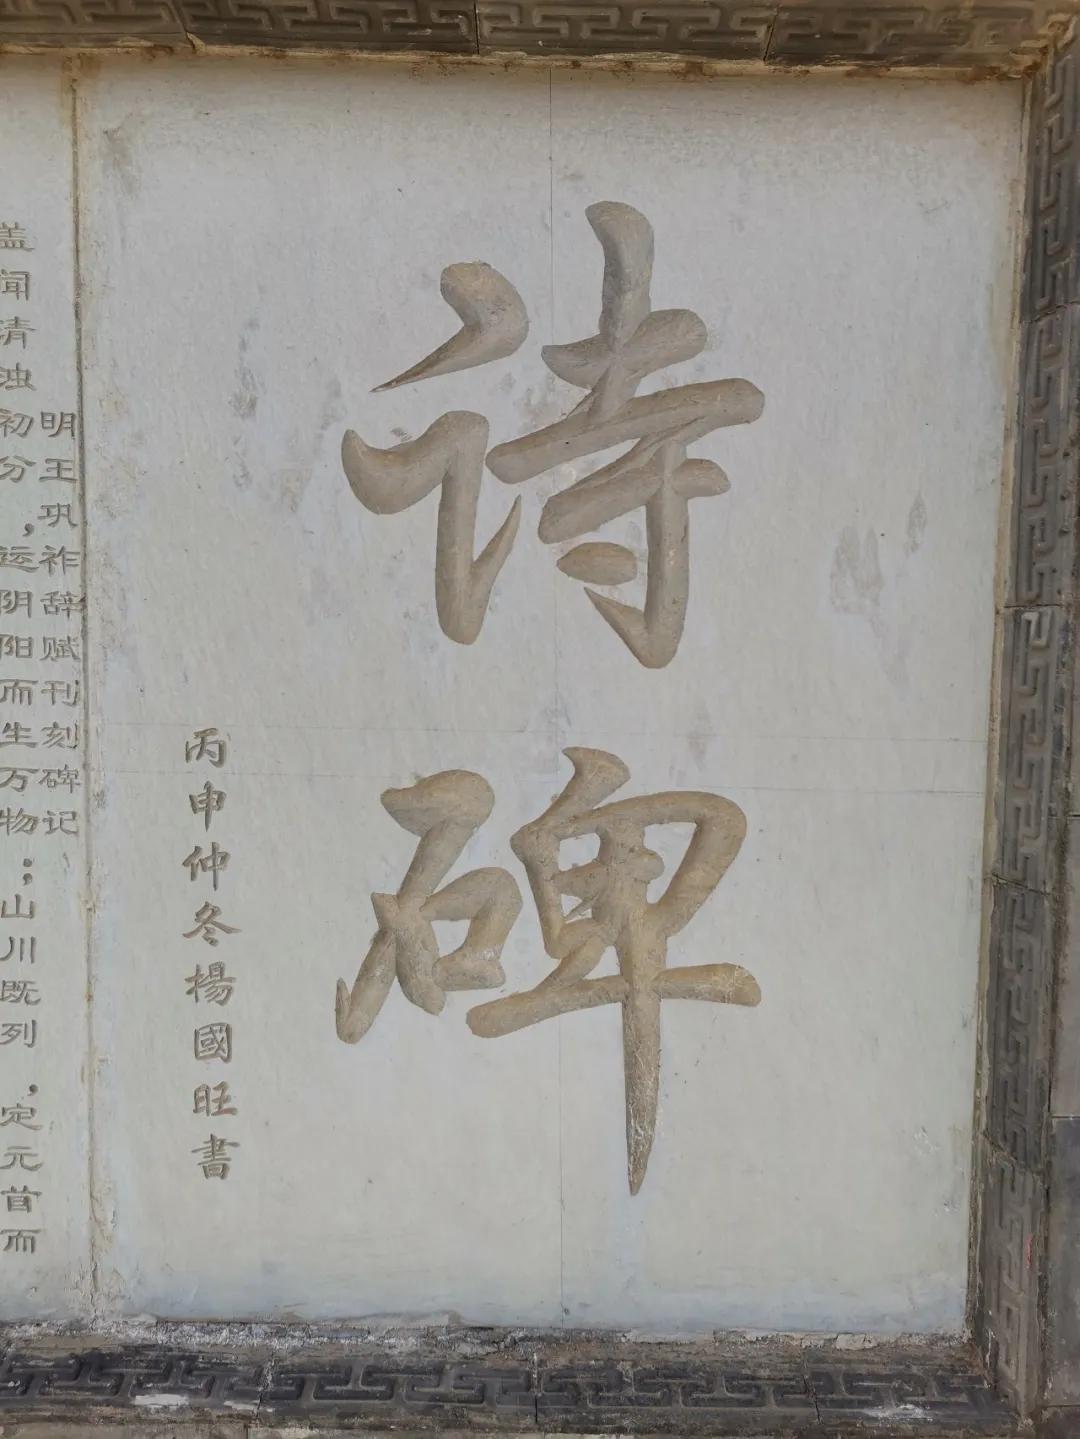 诗碑
丙申仲冬楊國旺書
明王巩祚辞赋刊刻碑记
盖闻清浊初分，运阴阳而生万物；山川既列，定元首而